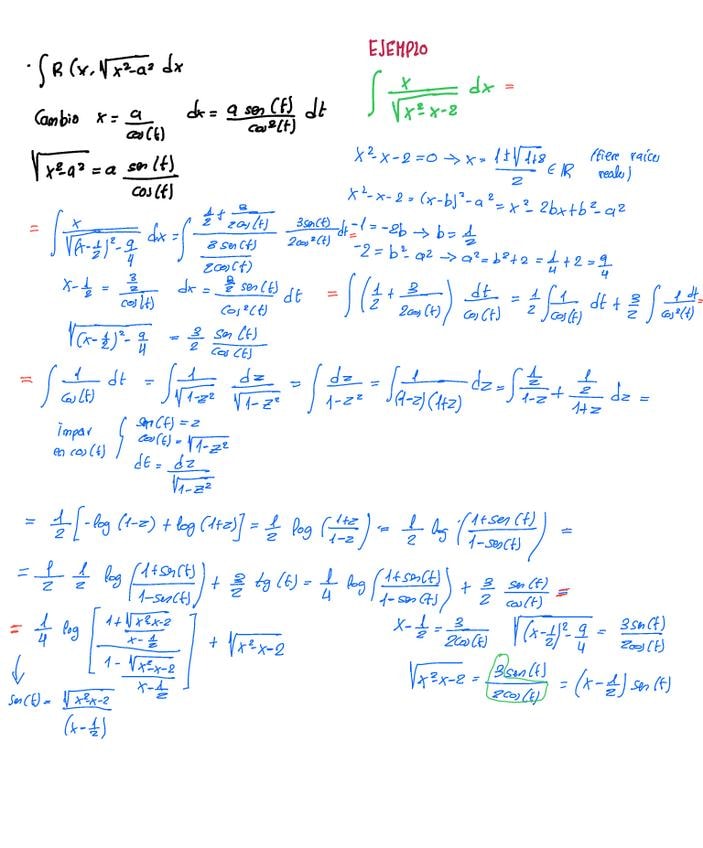 EJEMPLO
· ∫ R (x, √(x²-a²) dx
∫ x/√(x²-x-2) dx =
Cambio x = a/cos(t) dx = a sen(t)/cos²(t) dt
√(x²-a²) = a sen(t)/cos(t)
x²-x-2=0 → x = (1±√(1+8))/2 ∈ ℝ (tiene raíces reales)
x²-x-2 = (x-b)²-a² = x²-2bx+b²-a²
-1 = -2b → b = 1/2
-2 = b²-a² → a² = b²+2 = 1/4+2 = 9/4
= ∫ x/√((x-1/2)²-9/4) dx = ∫ (1/2 + 3/(2cos(t)))/(3sen(t)/(2cos(t))) 3sen(t)/(2cos²(t)) dt =
x-1/2 = (3/2)/cos(t) dx = (3/2 sen(t))/cos²(t) dt
= ∫ (1/2 + 3/(2cos(t))) dt/cos(t) = 1/2 ∫ 1/cos(t) dt + 3/2 ∫ 1 dt/cos²(t) =
√((x-1/2)²-9/4) = 3/2 sen(t)/cos(t)
= ∫ 1/cos(t) dt = ∫ 1/√(1-z²) dz/√(1-z²) = ∫ dz/(1-z²) = ∫ 1/((1-z)(1+z)) dz = ∫ (1/2)/(1-z) + (1/2)/(1+z) dz =
impar en cos(t) { sen(t) = z
cos(t) = √(1-z²)
dt = dz/√(1-z²)
= 1/2 [-log(1-z) + log(1+z)] = 1/2 log((1+z)/(1-z)) = 1/2 log((1+sen(t))/(1-sen(t))) =
= 1/2 1/2 log((1+sen(t))/(1-sen(t))) + 3/2 tg(t) = 1/4 log((1+sen(t))/(1-sen(t))) + 3/2 sen(t)/cos(t) =
= 1/4 log [(1+√(x²-x-2)/(x-1/2))/(1-√(x²-x-2)/(x-1/2))] + √(x²-x-2)
x-1/2 = 3/(2cos(t)) √((x-1/2)²-9/4) = 3sen(t)/(2cos(t))
√(x²-x-2) = 3sen(t)/(2cos(t)) = (x-1/2) sen(t)
↓
sen(t) = √(x²-x-2)/(x-1/2)